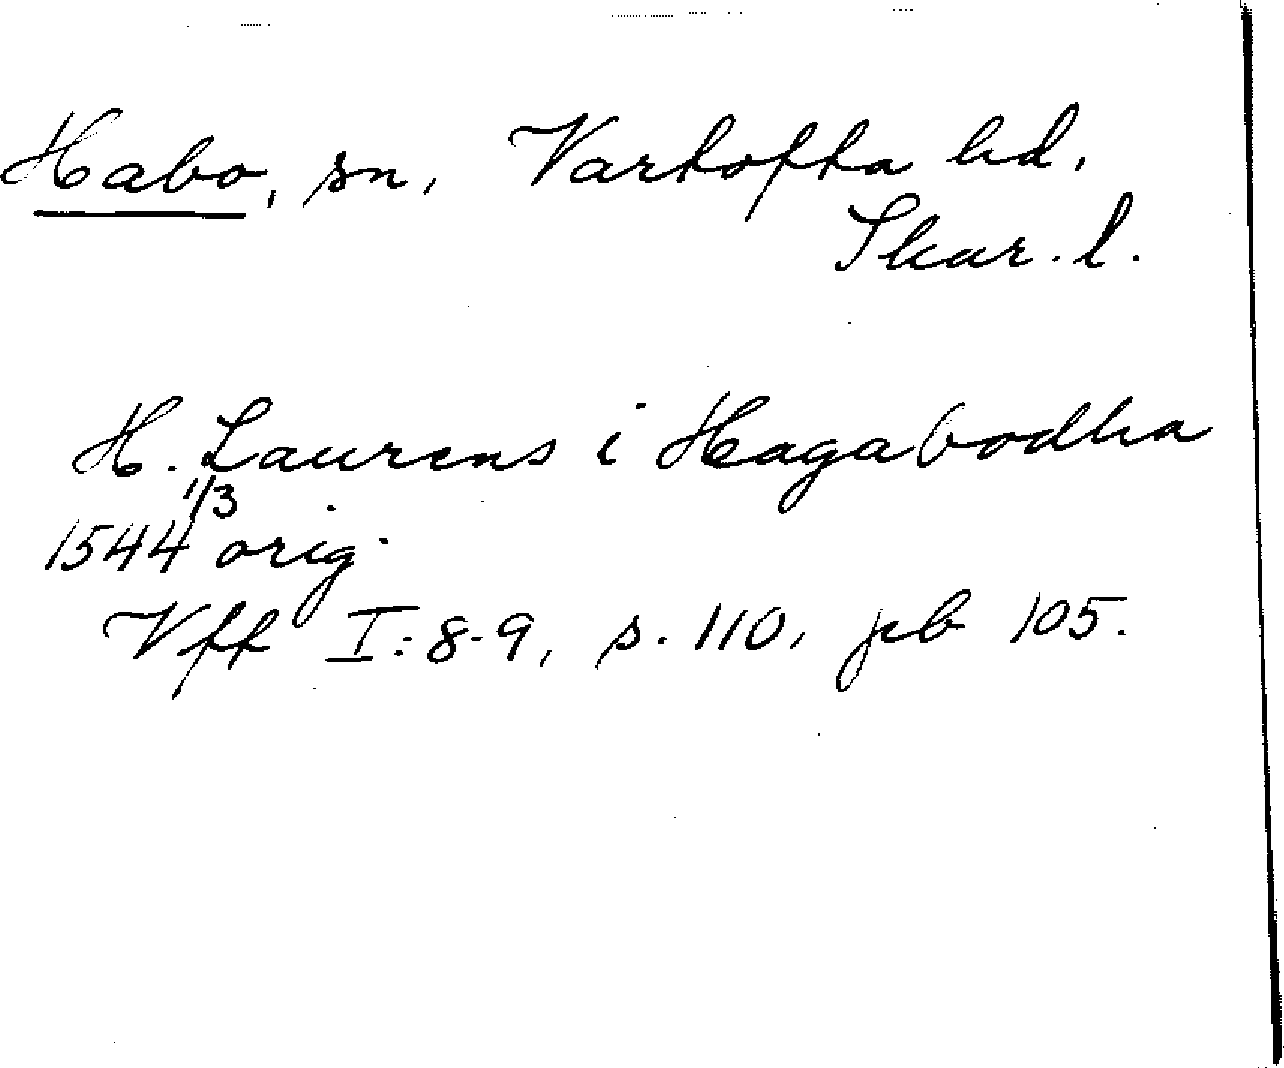 Habo, sn, Vartofta hd,
Skar. l.
H. Laurens i Hagabodha
1544 1/3 orig.
Vff I:8-9, s. 110, jeb 105.